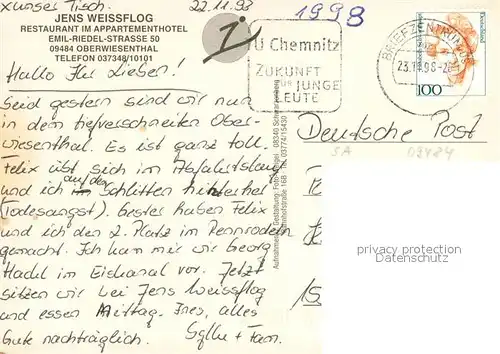 x unser Tisch.
22.11.98
1998
JENS WEISSFLOG
RESTAURANT IM APPARTEMENTHOTEL
EMIL-RIEDEL-STRASSE 50
09484 OBERWIESENTHAL
TELEFON 037348/10101
TU Chemnitz
ZUKUNFT
FÜR JUNGE
LEUTE
BRIEFZENTRUM
23.11.98
Deutschland
100
Deutsche Post
SA 09484
Hallo Ihr Lieben!
Seid gestern sind wir nun
in dem tiefverschneiten Ober-
wiesenthal. Es ist ganz toll.
Felix übt sich im Abfahrtslauf
und ich auf dem Schlitten hinterher
(Todesangst). Gestern haben Felix
und ich den 2. Platz im Rennrodeln
gemacht. Ich kam mir wie Georg
Hackl im Eiskanal vor. Jetzt
sitzen wir bei Jens Weissflog
und essen Mittag. Ines, alles
Gute nachträglich. Sylke + Fam.
Aufnahme und Gestaltung: Foto 08340 Schwarzenberg
Bahnhofstraße 16B 03774/15430
privacy protection
Datenschutz